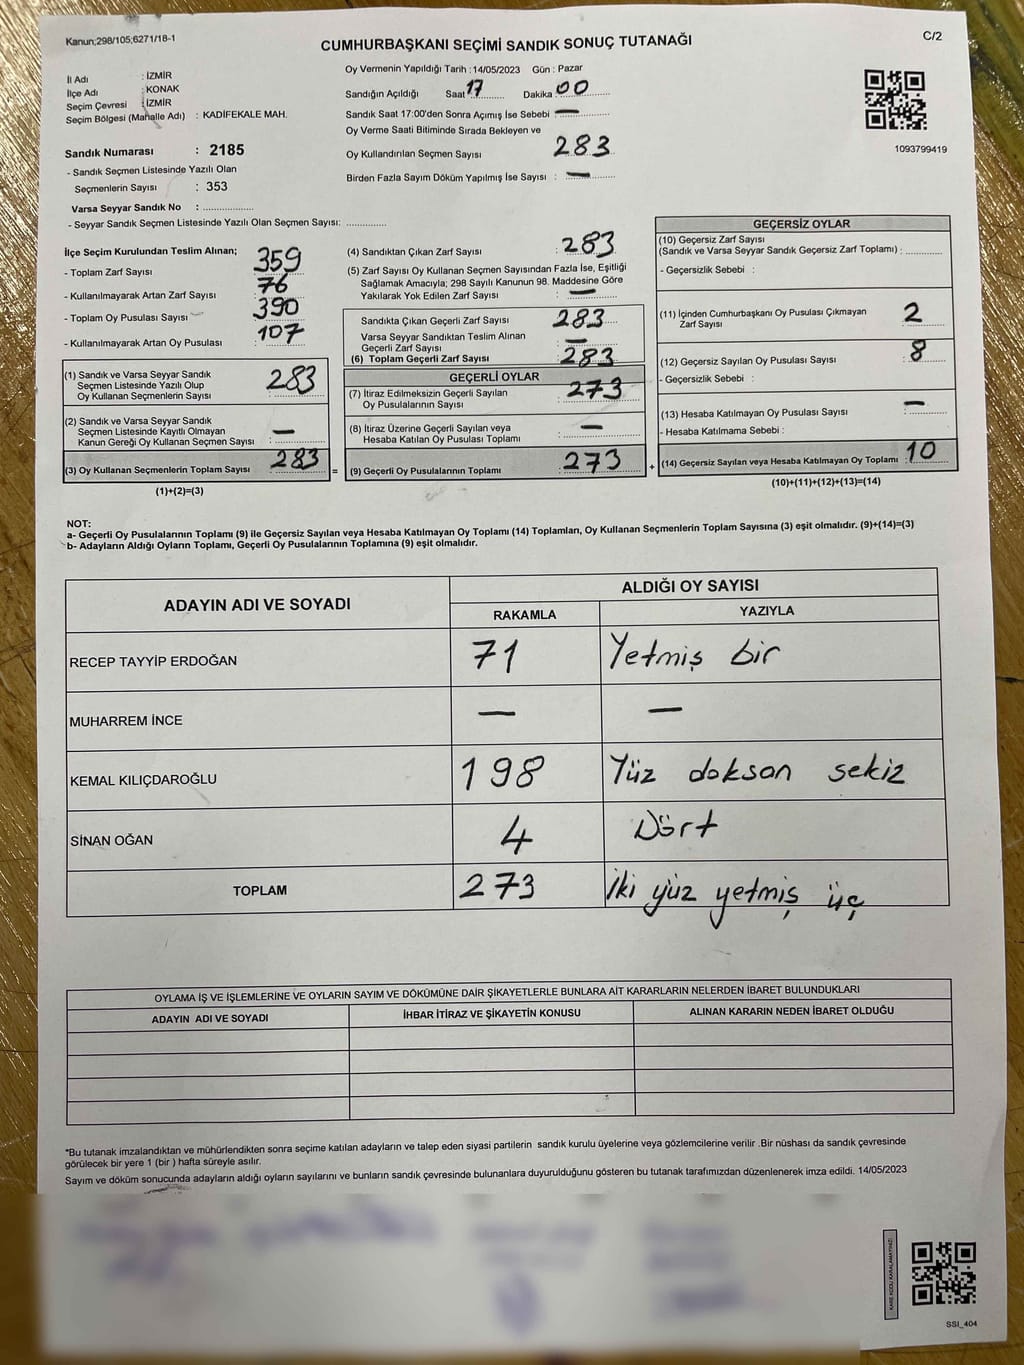 Kanun;298/105;6271/18-1
CUMHURBAŞKANI SEÇİMİ SANDIK SONUÇ TUTANAĞI
C/2
İl Adı : İZMİR
İlçe Adı : KONAK
Seçim Çevresi : İZMİR
Seçim Bölgesi (Mahalle Adı) : KADİFEKALE MAH.
Sandık Numarası : 2185
- Sandık Seçmen Listesinde Yazılı Olan
Seçmenlerin Sayısı : 353
Varsa Seyyar Sandık No : ..............
- Seyyar Sandık Seçmen Listesinde Yazılı Olan Seçmen Sayısı: ............
Oy Vermenin Yapıldığı Tarih : 14/05/2023 Gün : Pazar
Sandığın Açıldığı Saat 17 Dakika 00
Sandık Saat 17:00'den Sonra Açımış İse Sebebi —
Oy Verme Saati Bitiminde Sırada Bekleyen ve
Oy Kullandırılan Seçmen Sayısı 283
Birden Fazla Sayım Döküm Yapılmış İse Sayısı : —
1093799419
İlçe Seçim Kurulundan Teslim Alınan;
- Toplam Zarf Sayısı : 359
- Kullanılmayarak Artan Zarf Sayısı : 76
- Toplam Oy Pusulası Sayısı : 390
- Kullanılmayarak Artan Oy Pusulası : 107
(1) Sandık ve Varsa Seyyar Sandık
Seçmen Listesinde Yazılı Olup
Oy Kullanan Seçmenlerin Sayısı : 283
(2) Sandık ve Varsa Seyyar Sandık
Seçmen Listesinde Kayıtlı Olmayan
Kanun Gereği Oy Kullanan Seçmen Sayısı : —
(3) Oy Kullanan Seçmenlerin Toplam Sayısı : 283 =
(1)+(2)=(3)
(4) Sandıktan Çıkan Zarf Sayısı : 283
(5) Zarf Sayısı Oy Kullanan Seçmen Sayısından Fazla İse, Eşitliği
Sağlamak Amacıyla; 298 Sayılı Kanunun 98. Maddesine Göre
Yakılarak Yok Edilen Zarf Sayısı : —
Sandıkta Çıkan Geçerli Zarf Sayısı : 283
Varsa Seyyar Sandıktan Teslim Alınan
Geçerli Zarf Sayısı : —
(6) Toplam Geçerli Zarf Sayısı : 283
GEÇERLİ OYLAR
(7) İtiraz Edilmeksizin Geçerli Sayılan
Oy Pusulalarının Sayısı : 273
(8) İtiraz Üzerine Geçerli Sayılan veya
Hesaba Katılan Oy Pusulası Toplamı : —
(9) Geçerli Oy Pusulalarının Toplamı : 273 +
GEÇERSİZ OYLAR
(10) Geçersiz Zarf Sayısı
(Sandık ve Varsa Seyyar Sandık Geçersiz Zarf Toplamı) : ............
- Geçersizlik Sebebi :
(11) İçinden Cumhurbaşkanı Oy Pusulası Çıkmayan
Zarf Sayısı : 2
(12) Geçersiz Sayılan Oy Pusulası Sayısı : 8
- Geçersizlik Sebebi :
(13) Hesaba Katılmayan Oy Pusulası Sayısı : —
- Hesaba Katılmama Sebebi :
(14) Geçersiz Sayılan veya Hesaba Katılmayan Oy Toplamı : 10
(10)+(11)+(12)+(13)=(14)
NOT:
a- Geçerli Oy Pusulalarının Toplamı (9) ile Geçersiz Sayılan veya Hesaba Katılmayan Oy Toplamı (14) Toplamları, Oy Kullanan Seçmenlerin Toplam Sayısına (3) eşit olmalıdır. (9)+(14)=(3)
b- Adayların Aldığı Oyların Toplamı, Geçerli Oy Pusulalarının Toplamına (9) eşit olmalıdır.
ADAYIN ADI VE SOYADI
ALDIĞI OY SAYISI
RAKAMLA YAZIYLA
RECEP TAYYİP ERDOĞAN 71 Yetmiş bir
MUHARREM İNCE — —
KEMAL KILIÇDAROĞLU 198 Yüz doksan sekiz
SİNAN OĞAN 4 Dört
TOPLAM 273 İki yüz yetmiş üç
OYLAMA İŞ VE İŞLEMLERİNE VE OYLARIN SAYIM VE DÖKÜMÜNE DAİR ŞİKAYETLERLE BUNLARA AİT KARARLARIN NELERDEN İBARET BULUNDUKLARI
ADAYIN ADI VE SOYADI İHBAR İTİRAZ VE ŞİKAYETİN KONUSU ALINAN KARARIN NEDEN İBARET OLDUĞU
*Bu tutanak imzalandıktan ve mühürlendikten sonra seçime katılan adayların ve talep eden siyasi partilerin sandık kurulu üyelerine veya gözlemcilerine verilir .Bir nüshası da sandık çevresinde
görülecek bir yere 1 (bir ) hafta süreyle asılır.
Sayım ve döküm sonucunda adayların aldığı oyların sayılarını ve bunların sandık çevresinde bulunanlara duyurulduğunu gösteren bu tutanak tarafımızdan düzenlenerek imza edildi. 14/05/2023
KARE KODU KARALAMAYINIZ!
SSI_404